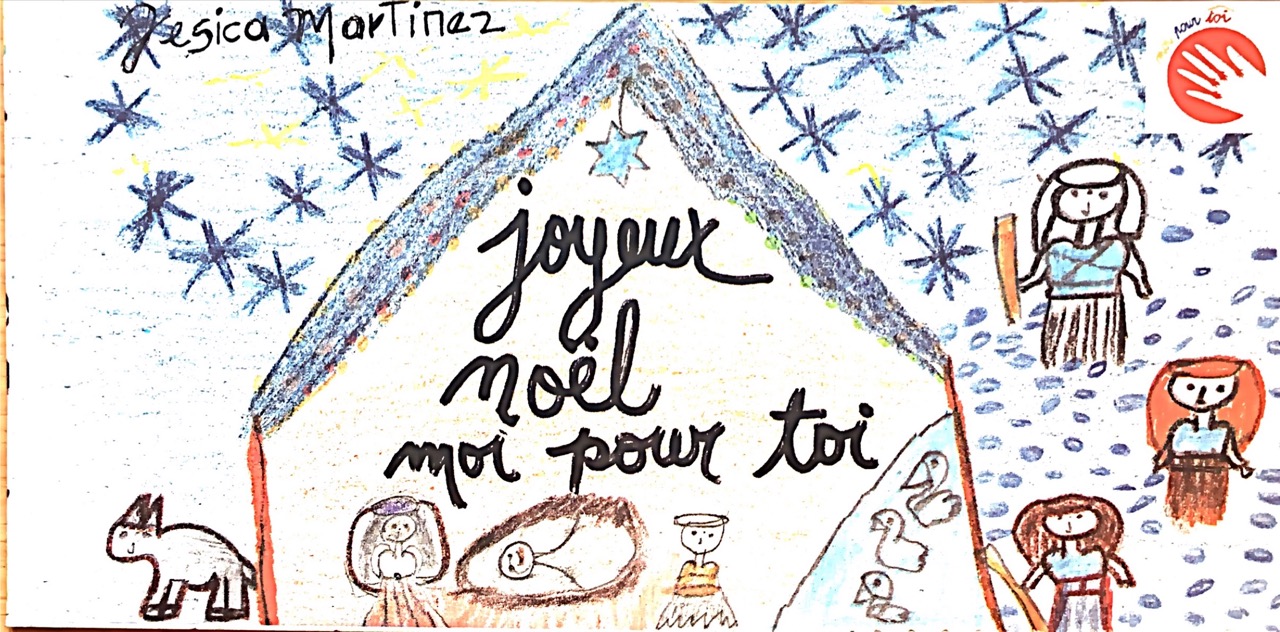 Jesica Martinez
pour toi
joyeux
noël
moi pour toi